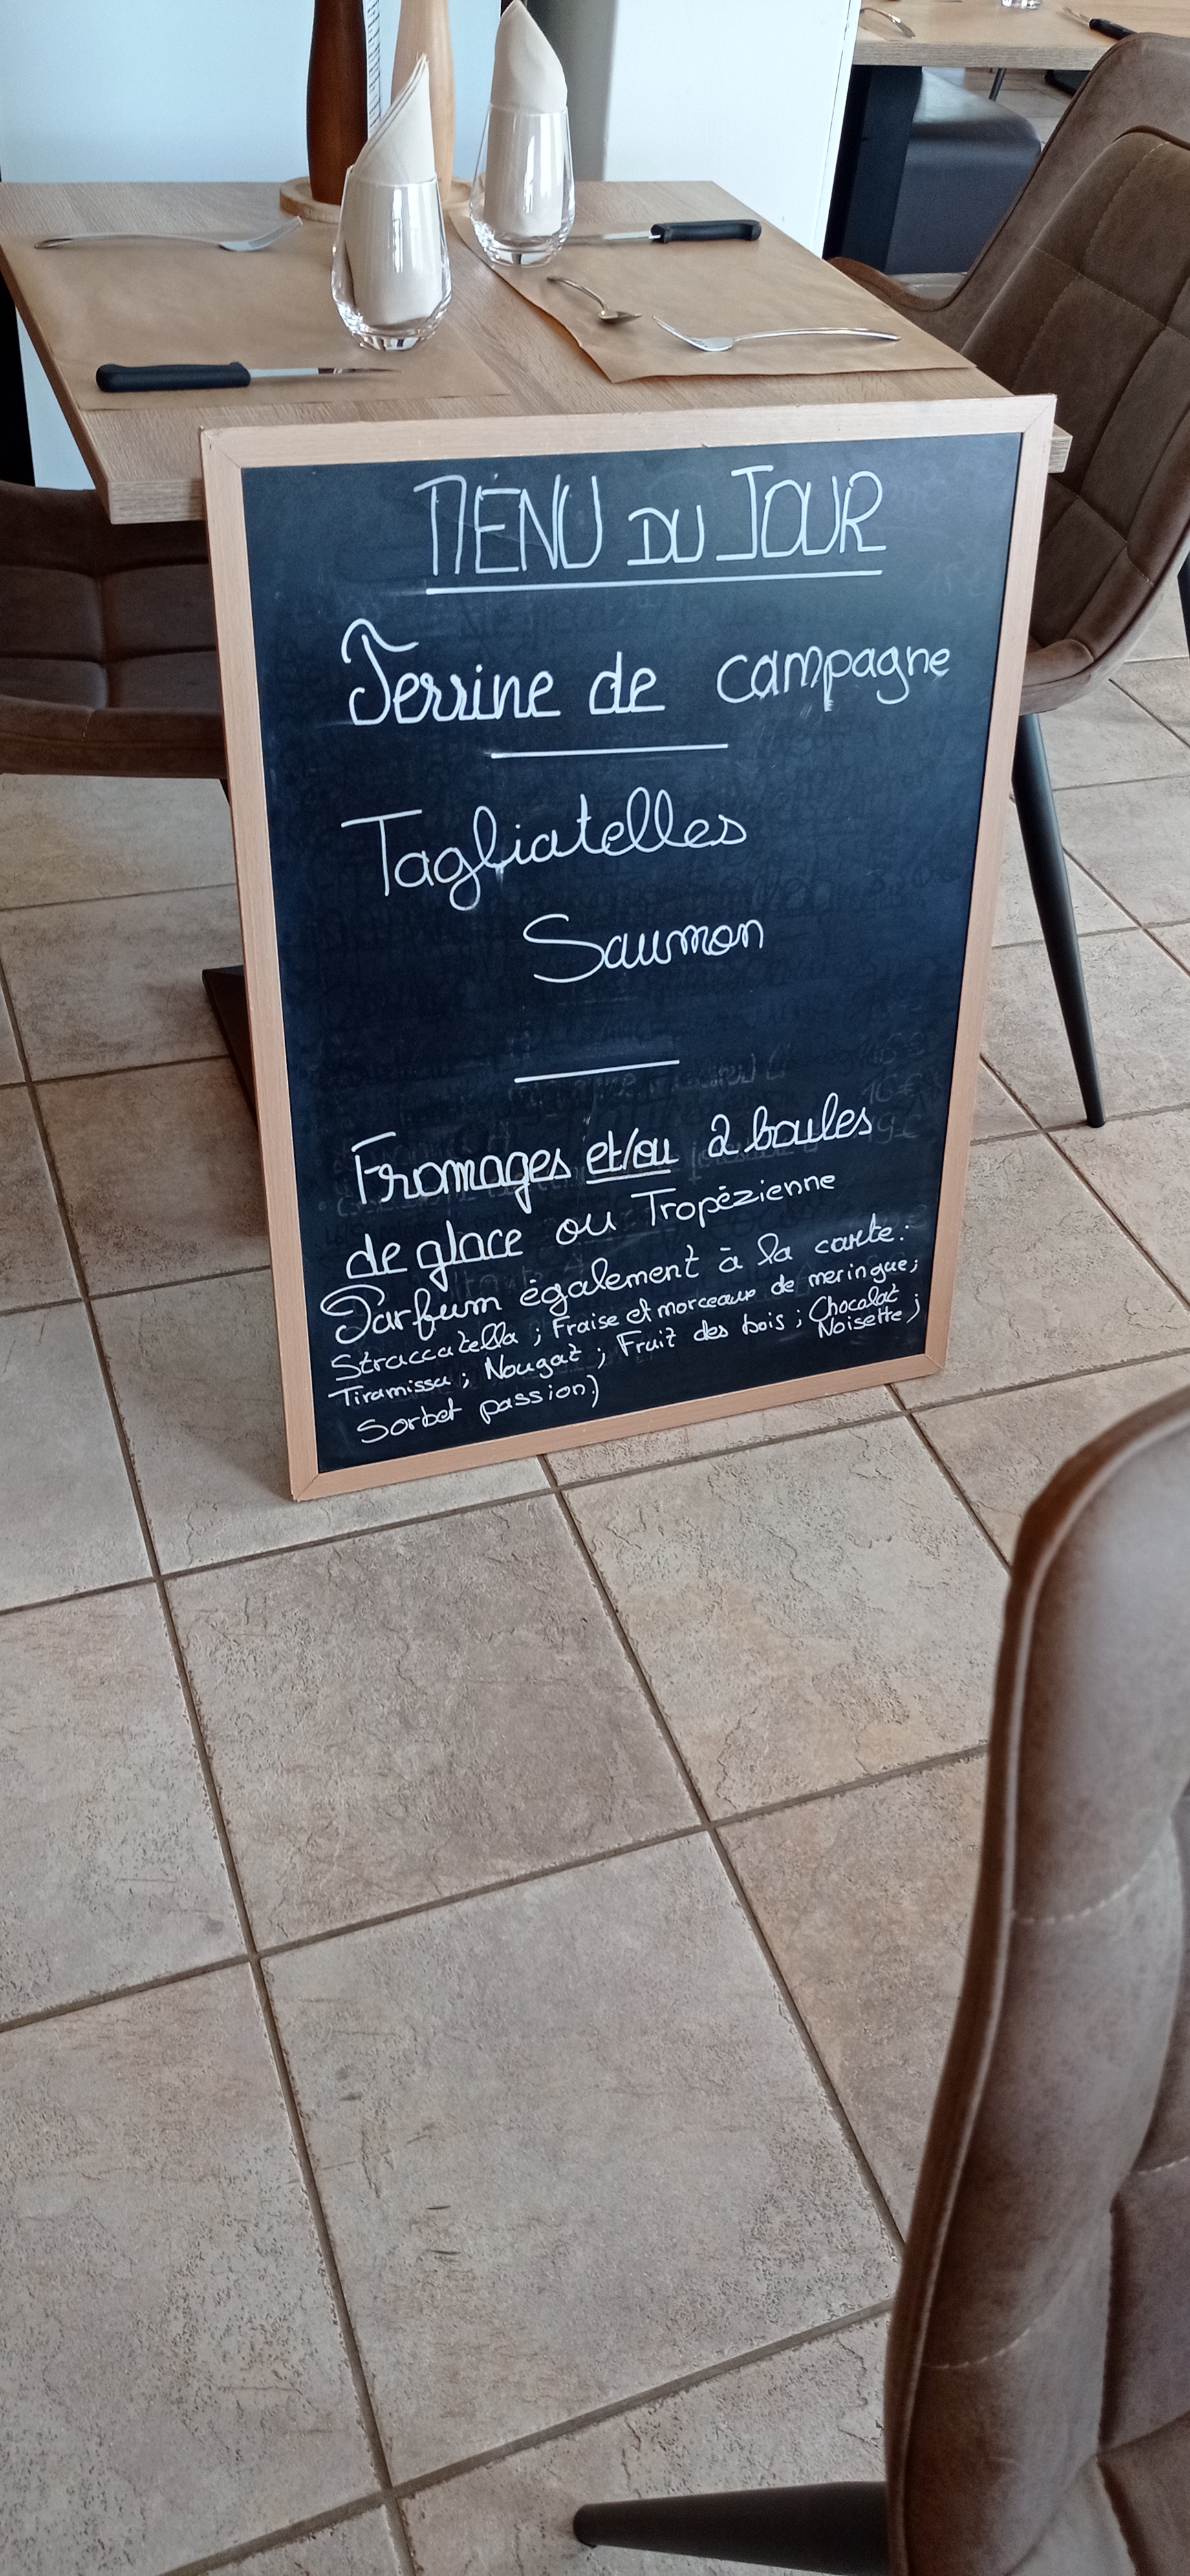 MENU DU JOUR
Terrine de campagne
Tagliatelles
Saumon
Fromages et/ou 2 boules
de glace ou Tropézienne
Parfum également à la carte:
Straccatella ; Fraise et morceaux de meringue ;
Tiramissu ; Nougat ; Fruit des bois ; Chocolat
Noisette ;
Sorbet passion.)